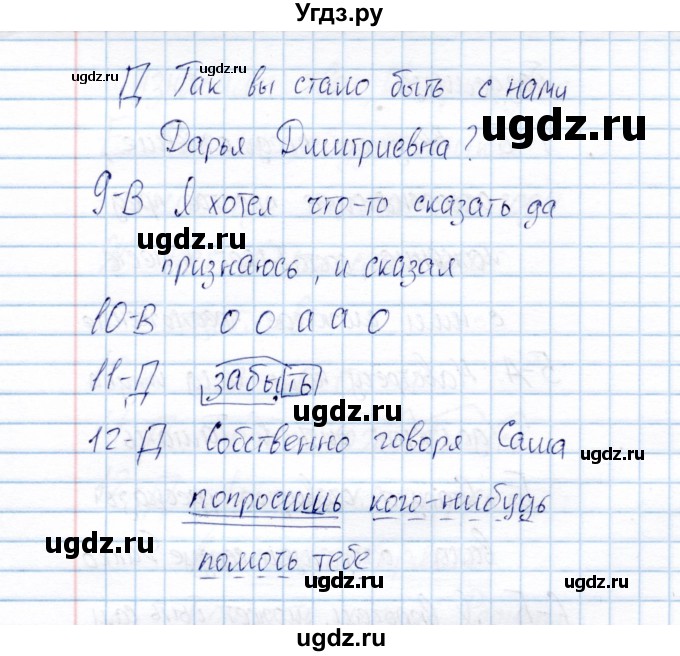 Угдз.ру
Д Так вы стало быть с нами
Дарья Дмитриевна?
9-В Я хотел что-то сказать да
признаюсь, и сказал
10-В о о а а о
11-Д забыть
12-Д Собственно говоря Саша
попросишь кого-нибудь
помочь тебе
ugdz.ru
ugdz.ru
ugdz.ru
ugdz.ru
ugdz.ru
ugdz.ru
ugdz.ru
ugdz.ru
ugdz.ru
ugdz.ru
ugdz.ru